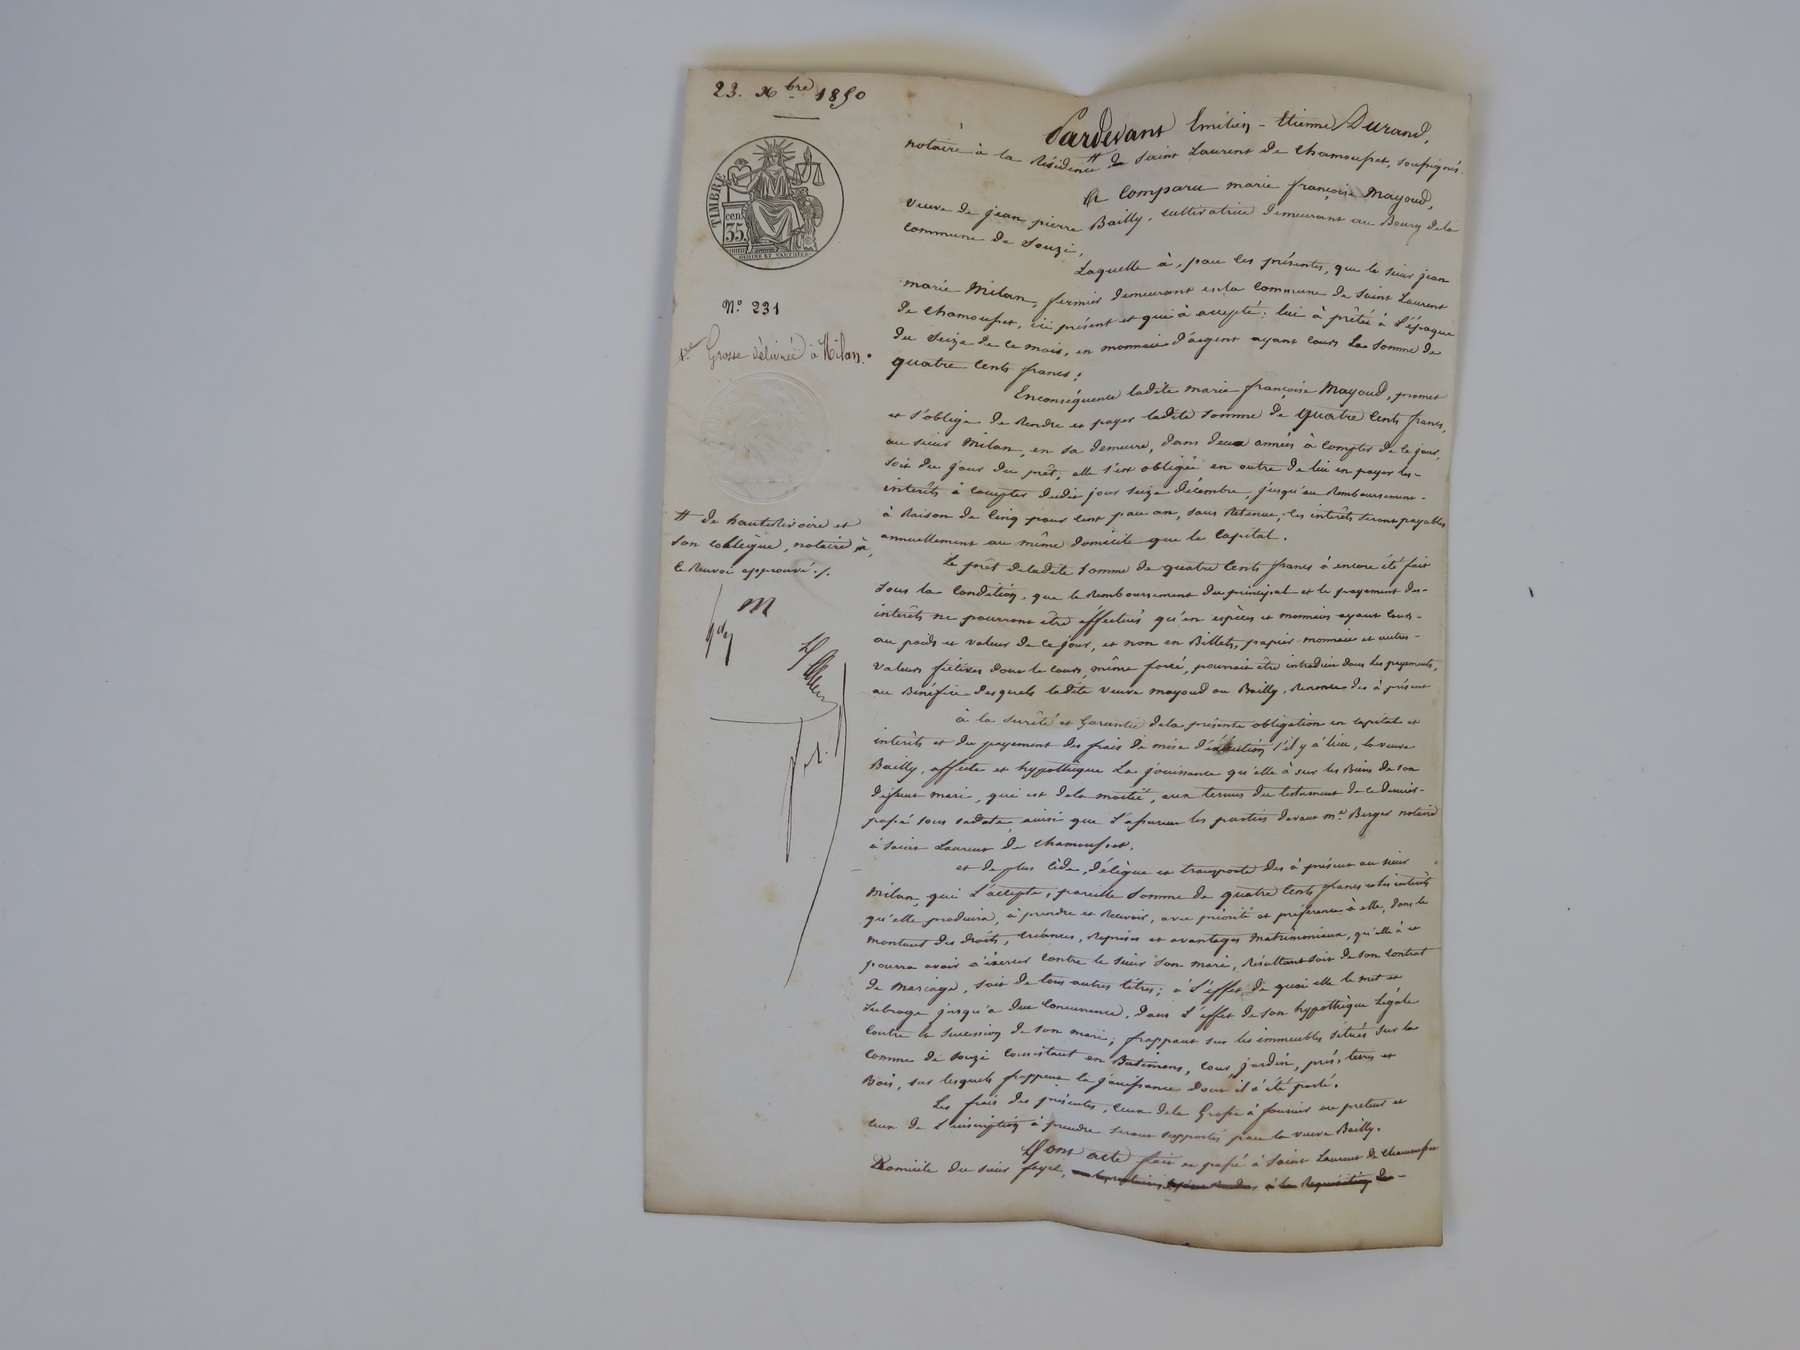 23. Xbre 1850
TIMBRE
cen. 35.
N.° 231
Grosse délivrée à Milan.
# de hauterivoire et
son collègue, notaire à,
le renvoi approuvé ./.
M
Pardevant Emilien - Etienne Durand,
notaire à la Résidence # de Saint Laurent de Chamousset, soussignés.
A Comparu marie françoise Mayoud,
Veuve de jean pierre Bailly, cultivatrice demeurant au Bourg dela
commune de Souzi,
Laquelle à, par les présentes, que le sieur jean
marie Milan, fermier demeurant en la Commune de Saint Laurent
de Chamousset, ici présent et qui à accepté; lui à prêté à L'époque
du Seize de ce mois, en monnaie d'argent ayant cours La Somme de
quatre Cents francs;
Enconséquence ladite marie françoise Mayoud, promet
et s'oblige de Rendre et payer ladite somme de quatre Cents francs,
au sieur Milan, en sa demeure, dans deux années à compter de ce jour,
soit du jour du prêt; elle s'est obligée en outre de lui en payer les-
intérêts à compter dudit jour seize décembre, jusqu'au Remboursement-
à Raison de Cinq pour Cent par an, sans Retenue; les intérêts seront payables
annuellement au même domicile que le Capital.
Le prêt deladite somme de quatre Cents francs à encore été fait
sous la Condition, que le Remboursement du principal et le payement des-
intérêts ne pourront être éffectués qu'en espèces et monnaies ayant cours-
au poids et valeur de ce jour, et non en Billets, papier monnaie et autres-
valeurs fictives dont le cours, même forcé, pourrait être introduire dans les payements,
au Bénéfice desquels ladite veuve mayoud ou Bailly, Renonce dès à présent
à la sureté et Garantie dela présente obligation en capital et
intérêts et du payement des frais de mise d'éxécution s'il y à lieu, la veuve
Bailly, affecte et hypothèque La jouissance qu'elle à sur les Biens de son
défunt mari, qui est dela moitié, aux termes du testament de ce dernier-
passé sous sadate, ainsi que L'assurent les parties devant m.e Berger notaire
à Saint Laurent de Chamousset.
et de plus Cède, délègue et transporte dès à présent au sieur
Milan, qui L'accepte, pareille somme de quatre Cents francs et les intérêts
qu'elle produira, à prendre et Recevoir, avec priorité et préférence à elle, dans le
montant des droits, créances, Reprises et avantages Matrimoniaux, qu'elle à et
pourra avoir à éxercer contre le sieur son mari, Résultant soit de son Contrat
de Mariage, soit de tous autres titres; à L'effet de quoi elle le met et
subroge jusqu'à due Concurrence, dans L'effet de son hypothèque Légale
Contre la sucession de son mari; frappant sur les immeubles situés sur la
Comme de Souzi Consistant en Batimens, Cour, jardin, prés, terres et
Bois, sur lesquels frappent la jouissance dont il à été parlé.
Les frais des présentes, Ceux dela Grosse à fournir au preteur et
Ceux de L'inscription à prendre seront supportés par la veuve Bailly.
Dont acte fait et passé à Saint Laurent de Chamousset
Domicile du sieur fayet,